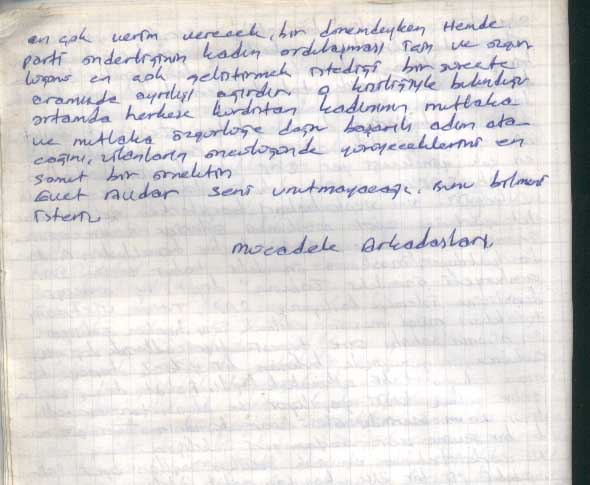 en çok verim verecek, bir dönemdeyken Hemde
parti önderliğinin kadın ordulaşması için ve özgün
en çok geliştirmek istediği bir süreçte
aramızda ayrılışı ağırdır. O kişiliğiyle bulunduğu
ortamda herkese kürdistan kadınının mutlaka
ve mutlaka özgürlüğe dair başarılı adım ata-
cağını, öncülüğünde yürüyeceklerini en
somut bir örnektin
Evet seni unutmayacağız, bunu bilmeni
isteriz
Mücadele Arkadaşların